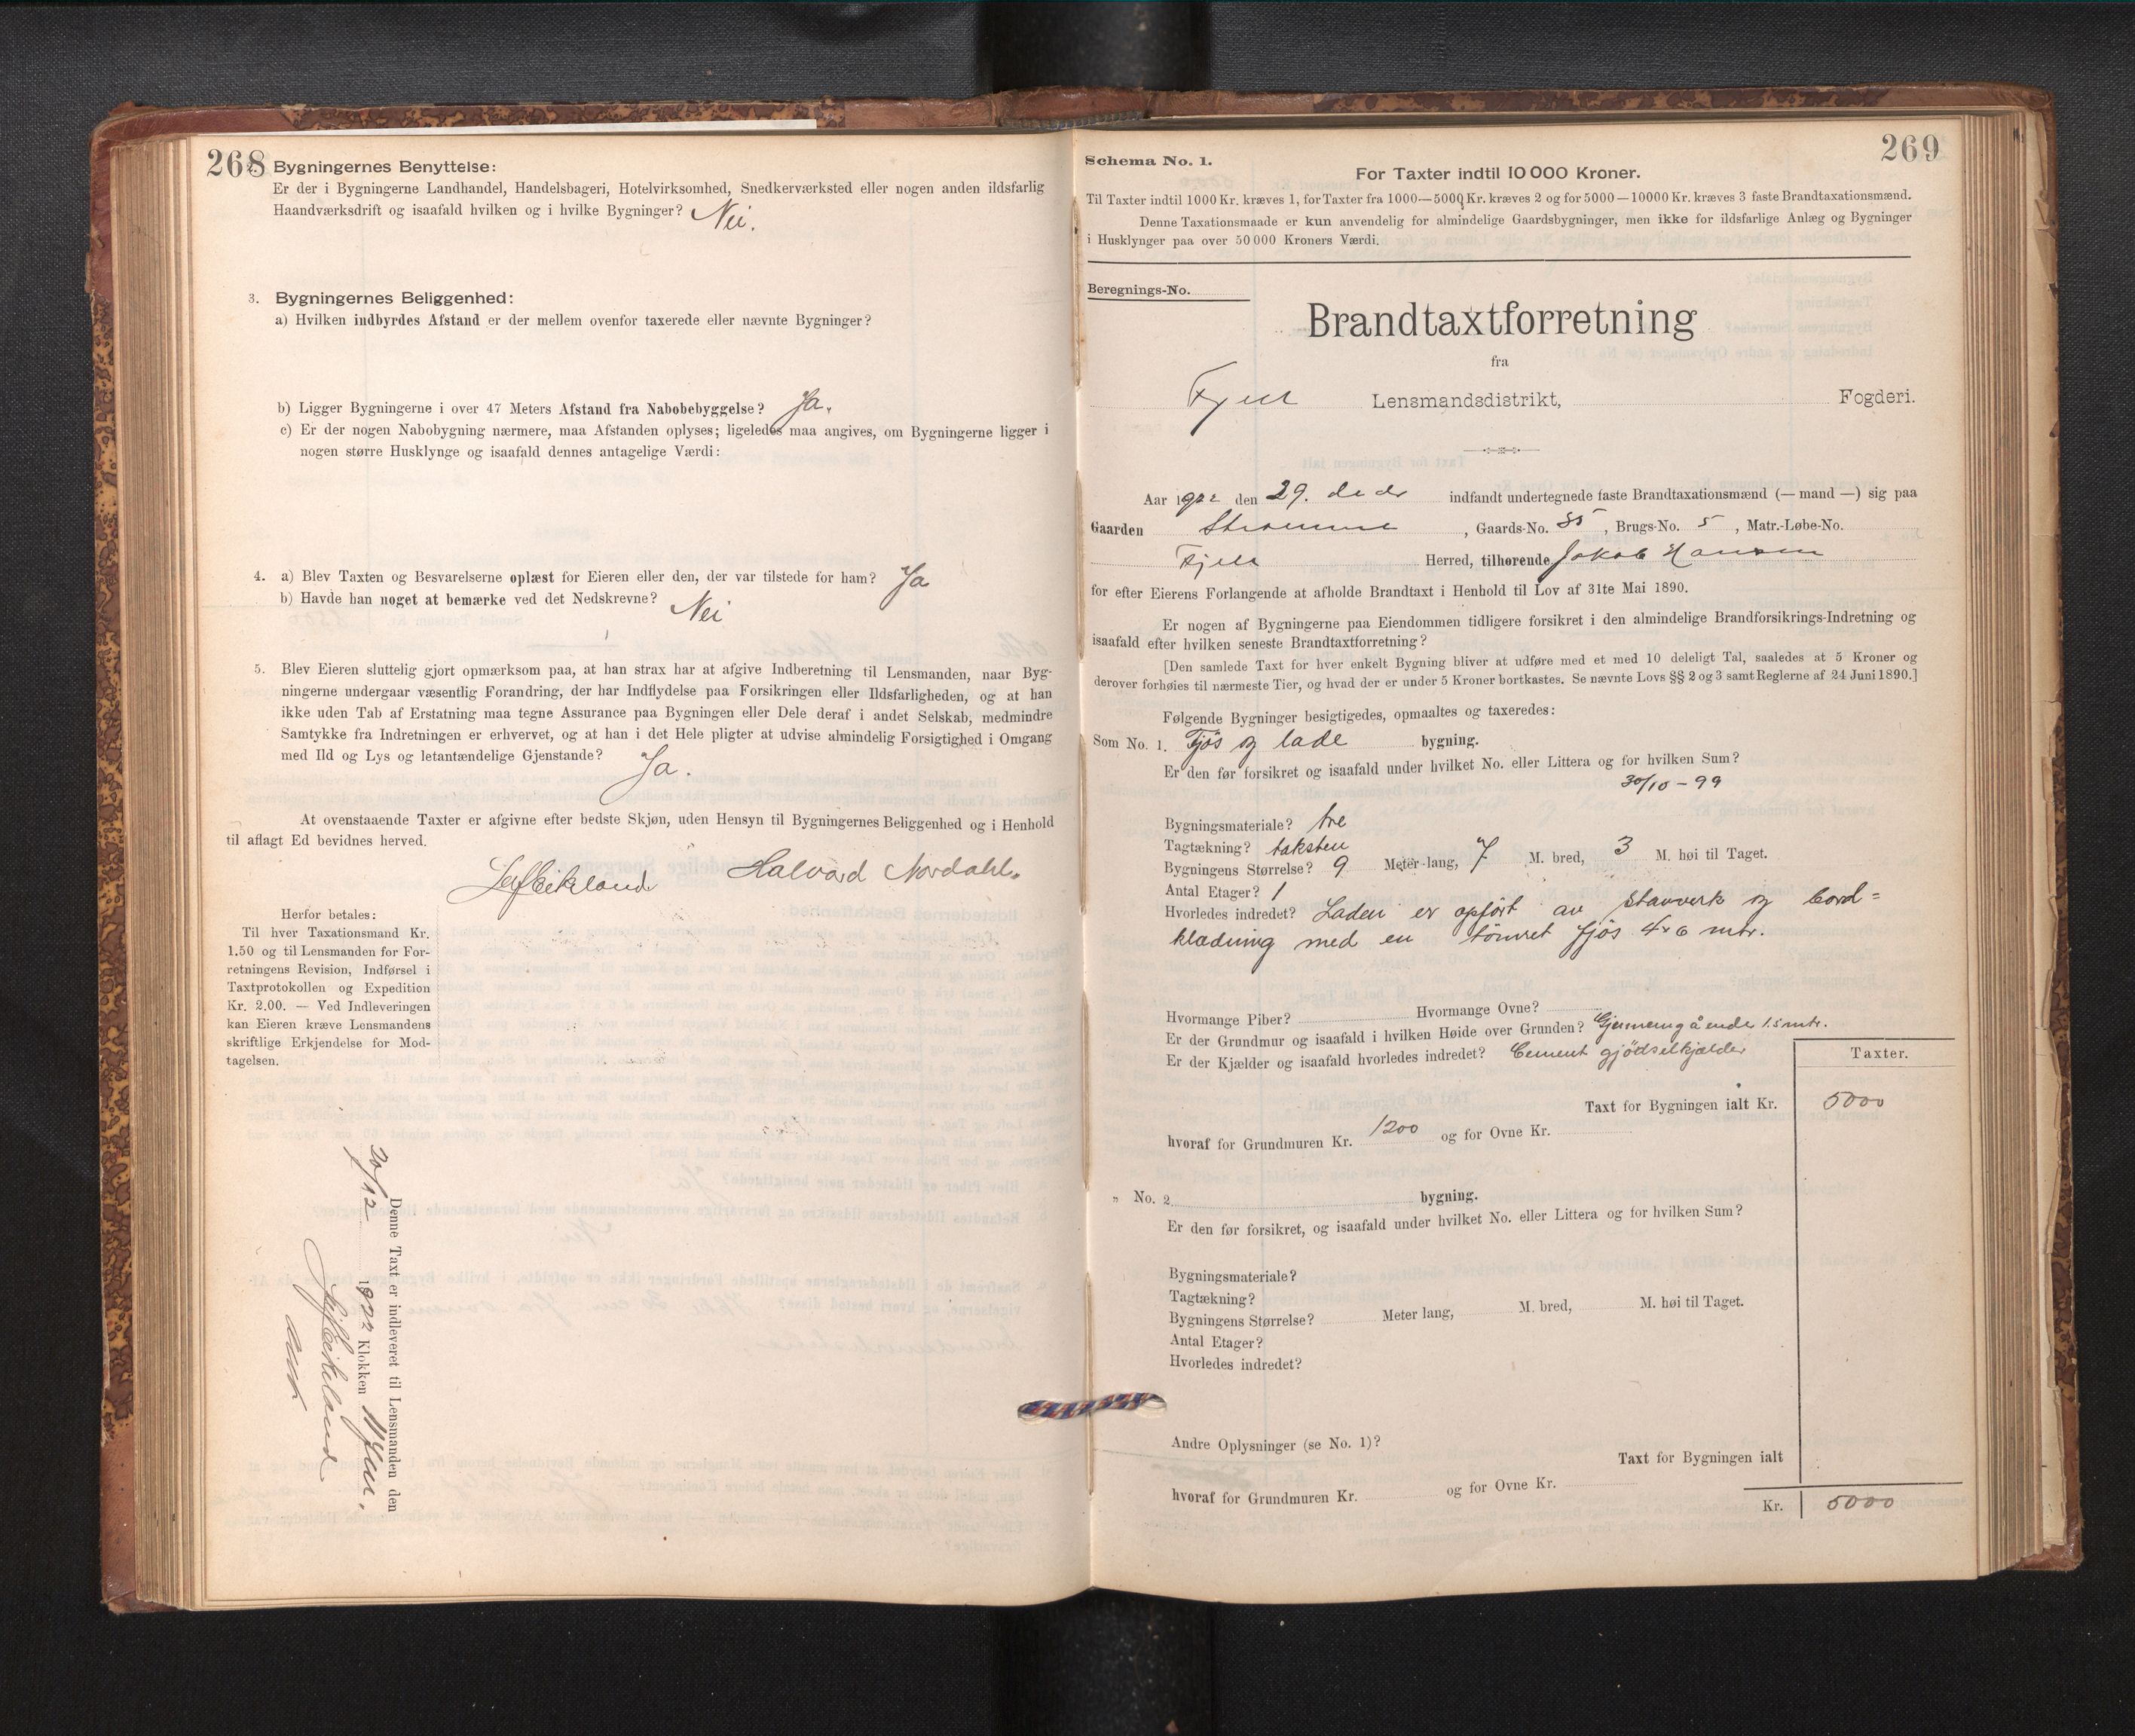 268
Bygningernes Benyttelse:
Er der i Bygningerne Landhandel, Handelsbageri, Hotelvirksomhed, Snedkerværksted eller nogen anden ildsfarlig
Haandværksdrift og isaafald hvilken og i hvilke Bygninger? Nei.
3. Bygningernes Beliggenhed:
a) Hvilken indbyrdes Afstand er der mellem ovenfor taxerede eller nævnte Bygninger?
b) Ligger Bygningerne i over 47 Meters Afstand fra Nabobebyggelse? Ja.
c) Er der nogen Nabobygning nærmere, maa Afstanden oplyses; ligeledes maa angives, om Bygningerne ligger i
nogen større Husklynge og isaafald dennes antagelige Værdi:
4. a) Blev Taxten og Besvarelserne oplæst for Eieren eller den, der var tilstede for ham? Ja
b) Havde han noget at bemærke ved det Nedskrevne? Nei
5. Blev Eieren sluttelig gjort opmærksom paa, at han strax har at afgive Indberetning til Lensmanden, naar Byg-
ningerne undergaar væsentlig Forandring, der har Indflydelse paa Forsikringen eller Ildsfarligheden, og at han
ikke uden Tab af Erstatning maa tegne Assurance paa Bygningen eller Dele deraf i andet Selskab, medmindre
Samtykke fra Indretningen er erhvervet, og at han i det Hele pligter at udvise almindelig Forsigtighed i Omgang
med Ild og Lys og letantændelige Gjenstande? Ja.
At ovenstaaende Taxter er afgivne efter bedste Skjøn, uden Hensyn til Bygningernes Beliggenhed og i Henhold
til aflagt Ed bevidnes herved.
Eikeland Halvard Nordahl.
Herfor betales:
Til hver Taxationsmand Kr.
1.50 og til Lensmanden for For-
retningens Revision, Indførsel i
Taxtprotokollen og Expedition
Kr. 2.00. — Ved Indleveringen
kan Eieren kræve Lensmandens
skriftlige Erkjendelse for Mod-
tagelsen.
Denne Taxt er indleveret til Lensmanden den
30/12 1922 Klokken 11 fm.
Eikeland
269
Schema No. 1.
For Taxter indtil 10 000 Kroner.
Til Taxter indtil 1000 Kr. kræves 1, for Taxter fra 1000—5000 Kr. kræves 2 og for 5000—10000 Kr. kræves 3 faste Brandtaxationsmænd.
Denne Taxationsmaade er kun anvendelig for almindelige Gaardsbygninger, men ikke for ildsfarlige Anlæg og Bygninger
i Husklynger paa over 50 000 Kroners Værdi.
Beregnings-No.
Brandtaxtforretning
fra
Fjell Lensmandsdistrikt, Fogderi.
Aar 1922 den 29. decbr indfandt undertegnede faste Brandtaxationsmænd (— mand —) sig paa
Gaarden Straumme, Gaards-No. 35, Brugs-No. 5, Matr.-Løbe-No.
Fjell Herred, tilhørende Jakob Hansen
for efter Eierens Forlangende at afholde Brandtaxt i Henhold til Lov af 31te Mai 1890.
Er nogen af Bygningerne paa Eiendommen tidligere forsikret i den almindelige Brandforsikrings-Indretning og
isaafald efter hvilken seneste Brandtaxtforretning?
[Den samlede Taxt for hver enkelt Bygning bliver at udføre med et med 10 deleligt Tal, saaledes at 5 Kroner og
derover forhøies til nærmeste Tier, og hvad der er under 5 Kroner bortkastes. Se nævnte Lovs §§ 2 og 3 samt Reglerne af 24 Juni 1890.]
Følgende Bygninger besigtigedes, opmaaltes og taxeredes:
Som No. 1. Fjös og lade bygning.
Er den før forsikret og isaafald under hvilket No. eller Littera og for hvilken Sum?
30/10 - 99
Bygningsmateriale? tre
Tagtækning? taksten
Bygningens Størrelse? 9 Meter lang, 7 M. bred, 3 M. høi til Taget.
Antal Etager? 1
Hvorledes indredet? Laden er opført av stavverk og bord=
klædning med en tömret fjös 4x6 mtr.
Hvormange Piber? Hvormange Ovne?
Er der Grundmur og isaafald i hvilken Høide over Grunden? Gjennemgående 1.5 mtr.
Er der Kjælder og isaafald hvorledes indredet? Cement gjödselkjælder
Taxter.
Taxt for Bygningen ialt Kr. 5000
hvoraf for Grundmuren Kr. 1200 og for Ovne Kr.
„ No. 2 bygning.
Er den før forsikret, og isaafald under hvilket No. eller Littera og for hvilken Sum?
Bygningsmateriale?
Tagtækning?
Bygningens Størrelse? Meter lang, M. bred, M. høi til Taget.
Antal Etager?
Hvorledes indredet?
Andre Oplysninger (se No. 1)?
Taxt for Bygningen ialt
hvoraf for Grundmuren Kr. og for Ovne Kr.
Kr. 5000